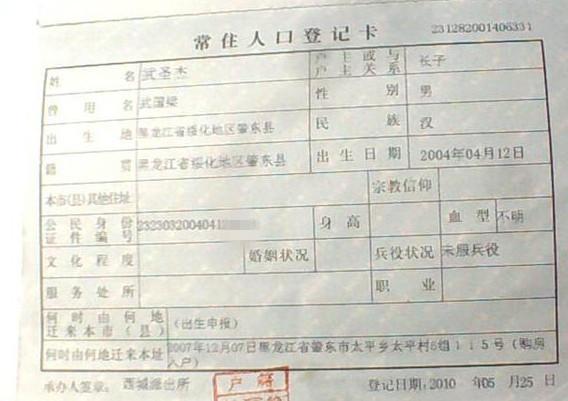 常住人口登记卡 231282001406331
姓名 武圣杰 户主或与户主关系 长子
曾用名 武国梁 性别 男
出生地 黑龙江省绥化地区肇东县 民族 汉
籍贯 黑龙江省绥化地区肇东县 出生日期 2004年04月12日
本市(县)其他住址 宗教信仰
公民身份证件编号 23230320040412 身高 血型 不明
文化程度 婚姻状况 兵役状况 未服兵役
服务处所 职业
何时由何地迁来本市(县) (出生申报)
何时由何地迁来本址 2007年12月07日黑龙江省肇东市太平乡太平村6组115号(购房入户)
承办人签章: 西城派出所 户籍 登记日期:2010年05月25日